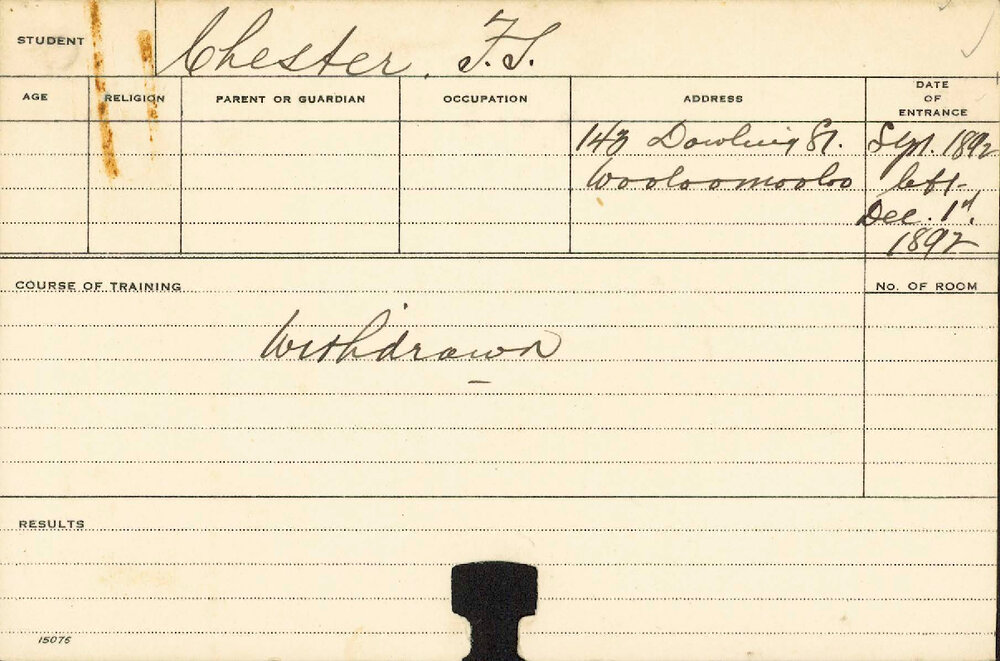 STUDENT Chester. F.S.
AGE RELIGION PARENT OR GUARDIAN OCCUPATION ADDRESS DATE OF ENTRANCE
143 Dowling St. Sept. 1892
Wooloomooloo left
Dec. 1st.
1892
COURSE OF TRAINING No. OF ROOM
Withdrawn
RESULTS
15075